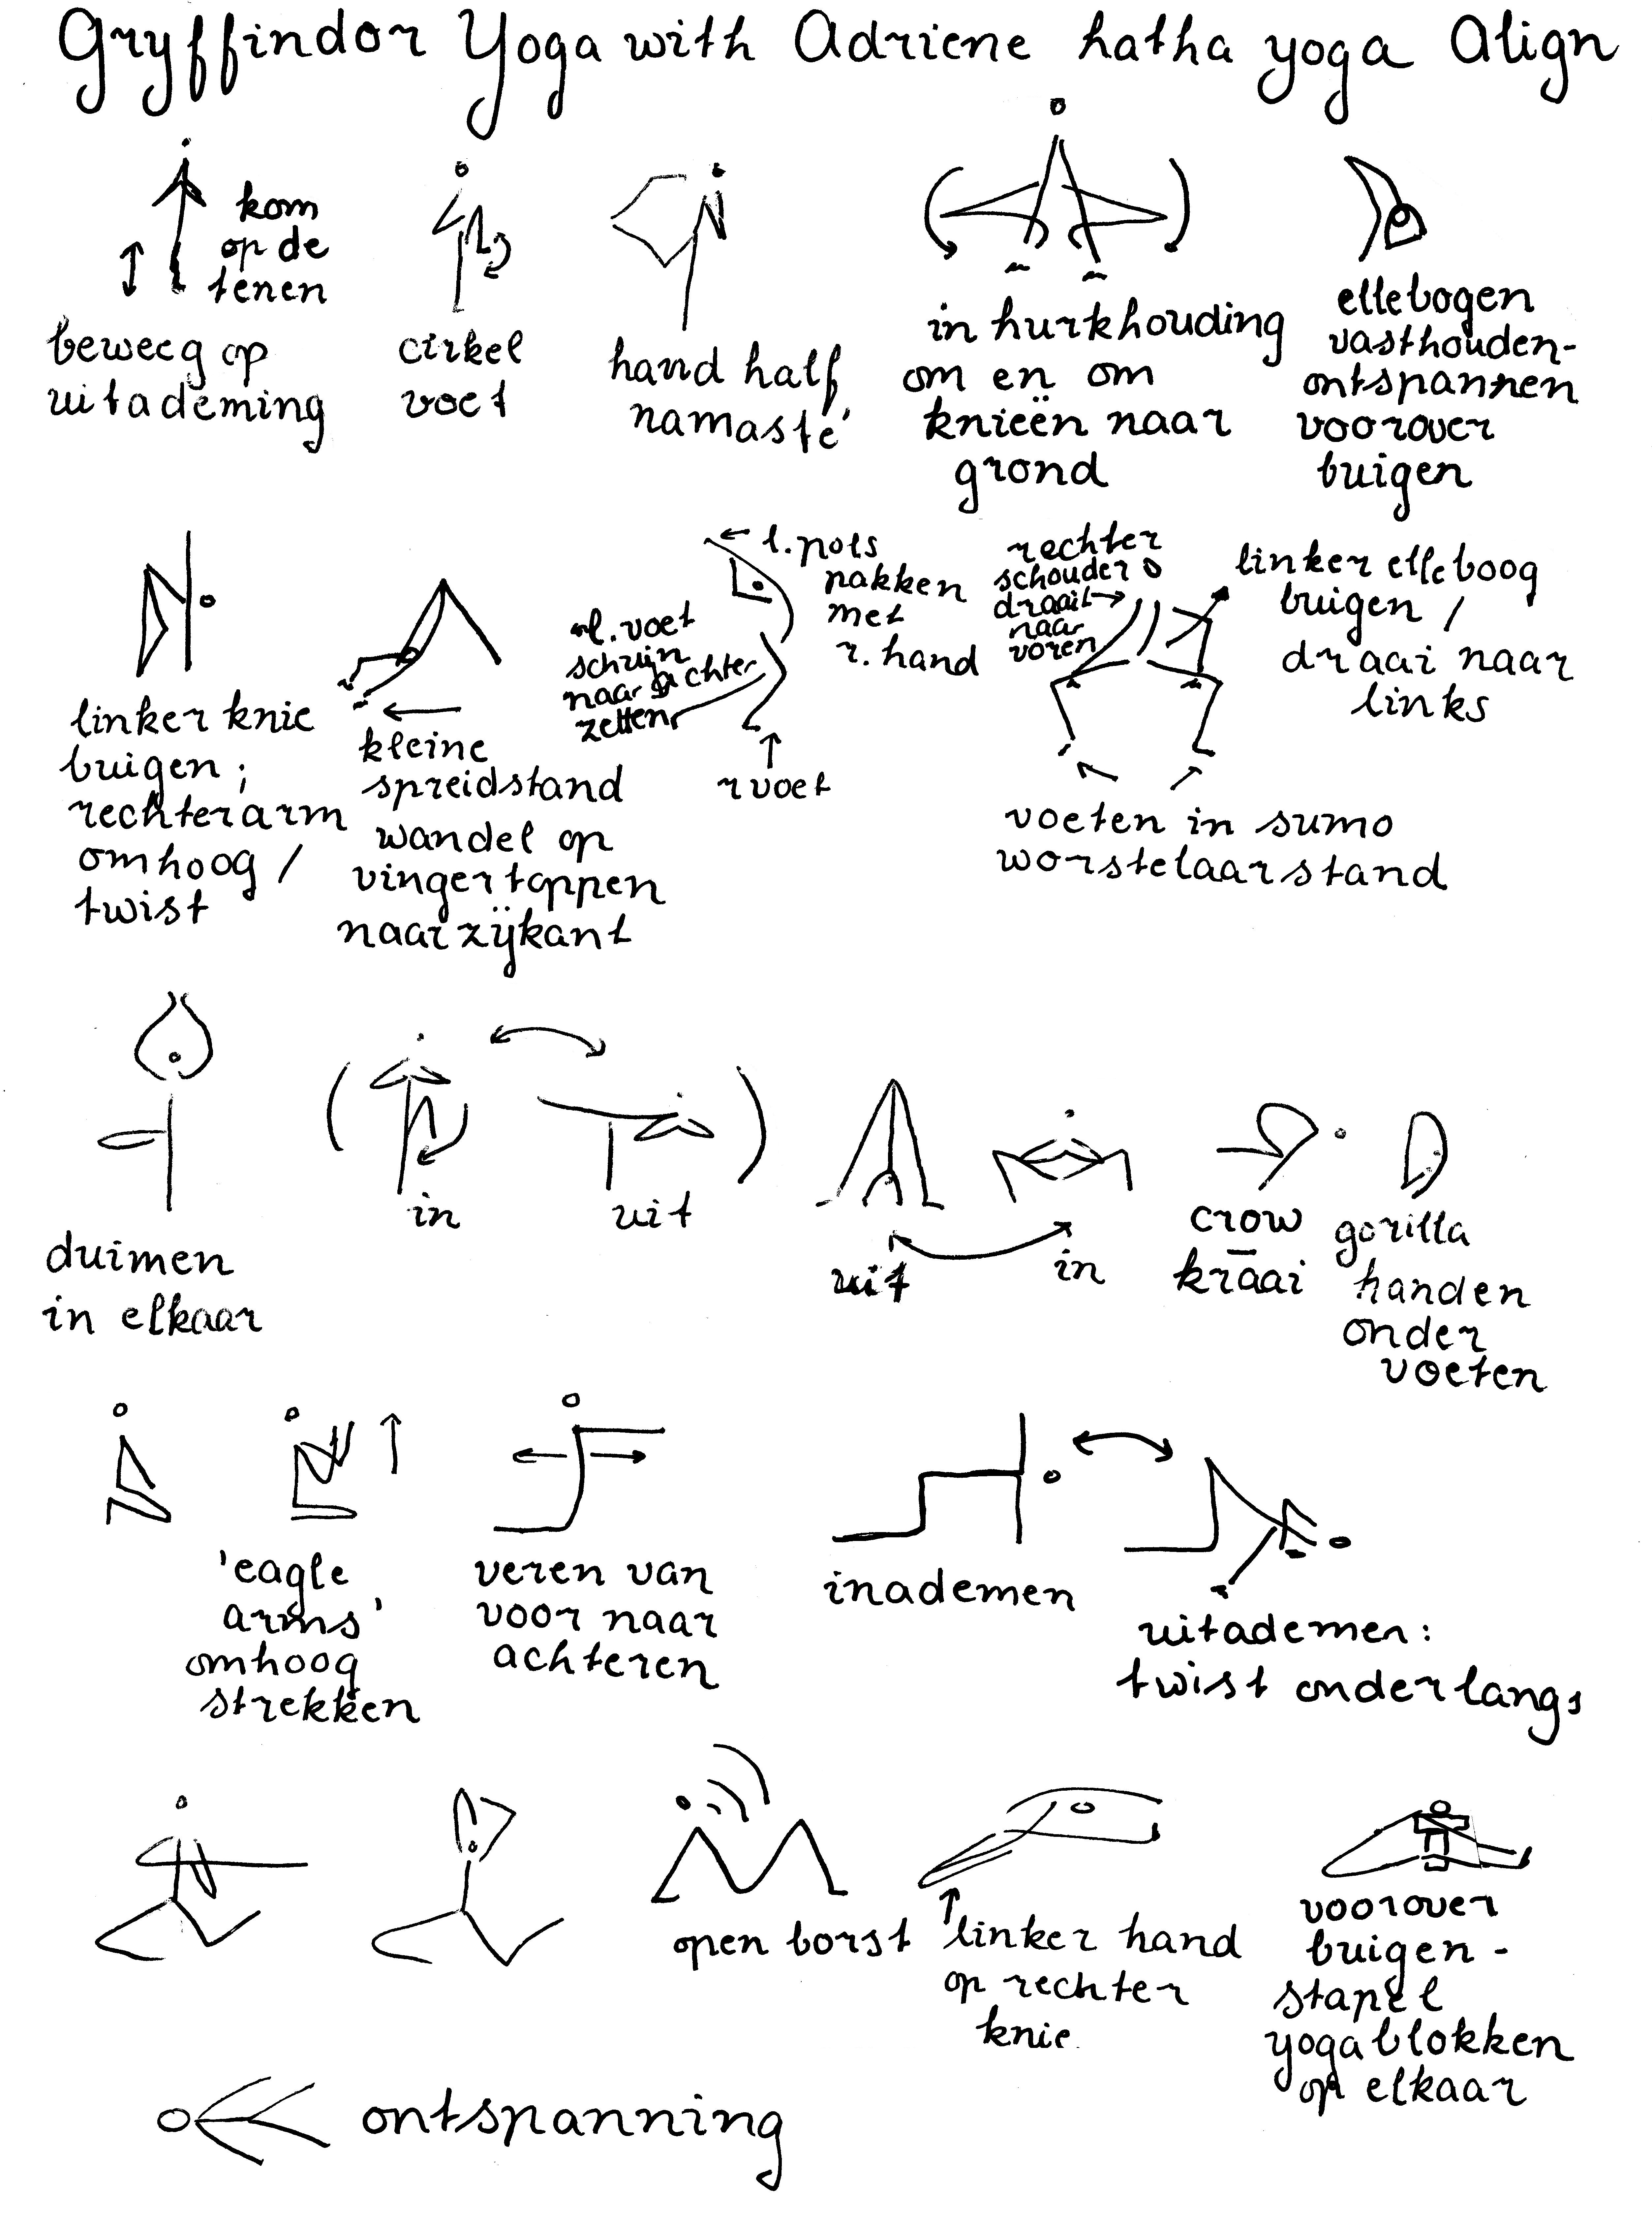 Gryffindor Yoga with Adriene hatha yoga Align
kom
op de
tenen
beweeg op
uitademing
cirkel
voet
hand half
namasté
in hurkhouding
om en om
knieën naar
grond
ellebogen
vasthouden-
ontspannen
voorover
buigen
linker knie
buigen;
rechterarm
omhoog /
twist
kleine
spreidstand
wandel op
vingertoppen
naar zijkant
l. pols
pakken
met
r. hand
l. voet
schuin
naar achter
zetten
r voet
rechter
schouder
draait
naar
voren
linker elleboog
buigen /
draai naar
links
voeten in sumo
worstelaarstand
duimen
in elkaar
in
uit
uit
in
crow
kraai
gorilla
handen
onder
voeten
'eagle
arms'
omhoog
strekken
veren van
voor naar
achteren
inademen
uitademen:
twist onderlangs
open borst
linker hand
op rechter
knie.
voorover
buigen -
stapel
yogablokken
op elkaar
ontspanning